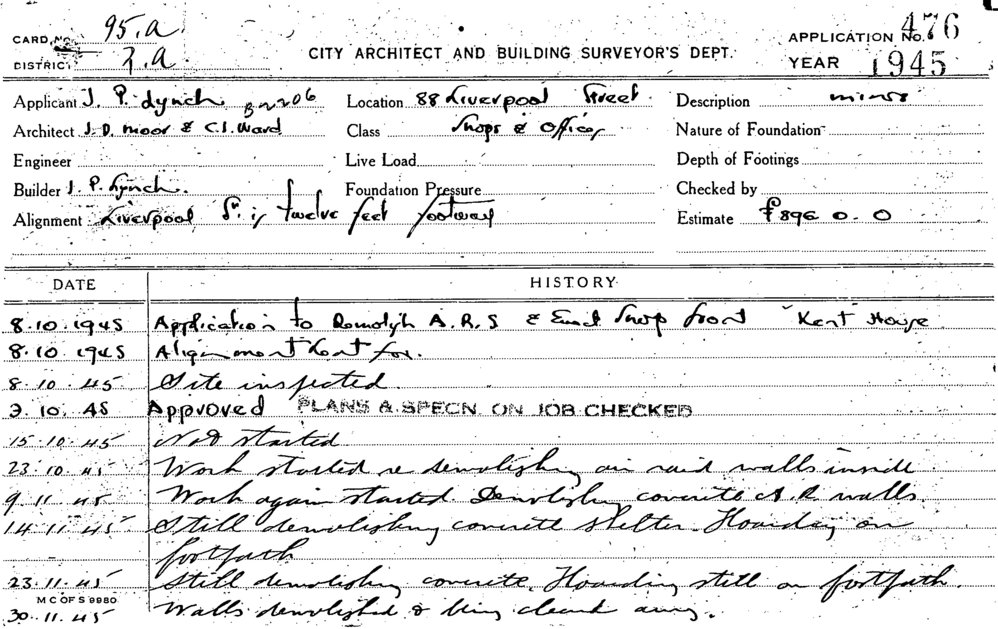 CARD No. 95.a
DISTRICT 2.a
CITY ARCHITECT AND BUILDING SURVEYOR'S DEPT.
APPLICATION No. 476
YEAR 1945
Applicant J. P. Lynch BN206 Location 88 Liverpool Street Description minor
Architect J.D. Moor & C.I. Ward Class Shops & Offices Nature of Foundation
Engineer Live Load Depth of Footings
Builder J. P. Lynch. Foundation Pressure Checked by
Alignment Liverpool St. is twelve feet footway Estimate £896 0. 0
DATE HISTORY
8.10.1945 Application to Demolish A.R.S & Erect Shop front "Kent House
8.10.1945 Alignment sent for.
8.10.45 Site inspected.
9.10.45 Approved PLANS & SPECN. ON JOB CHECKED
15.10.45 Not started
23.10.45 Work started re demolishing air raid walls inside
9.11.45 Work again started. Demolishing concrete A.R. walls
14.11.45 Still demolishing concrete shelter. Hoarding on
footpath
23.11.45 Still demolishing concrete. Hoarding still on footpath.
M C OF S 9980
30.11.45 Walls demolished & being cleared away.